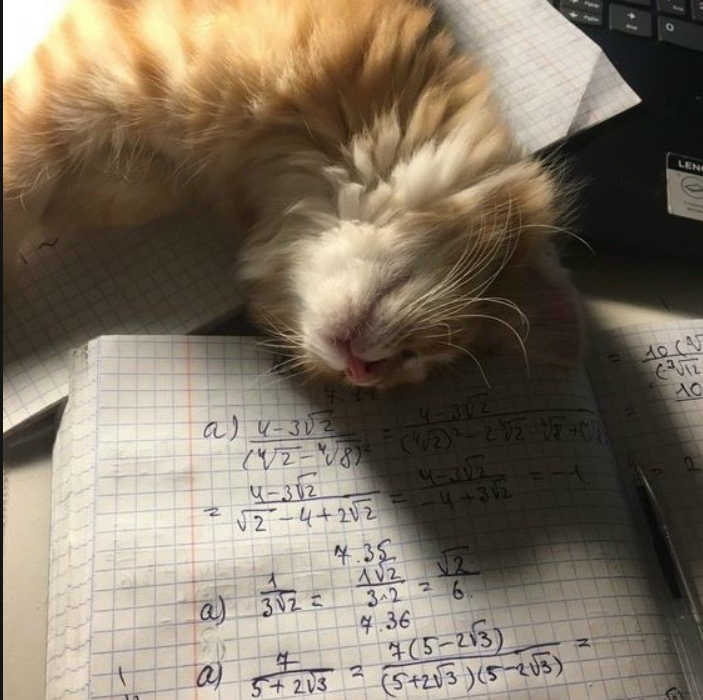 LEN
а) (4-3√2)/(⁴√2-⁴√8)² = (4-3√2)/((⁴√2)²-2⁴√2·⁴√8+(⁴√8)
= (4-3√2)/(√2-4+2√2) = (4-3√2)/(-4+3√2) = -1
7.35
а) 1/(3√2) = (1√2)/(3·2) = √2/6
7.36
а) 7/(5+2√3) = (7(5-2√3))/((5+2√3)(5-2√3)) =
= 10(
10
= 2